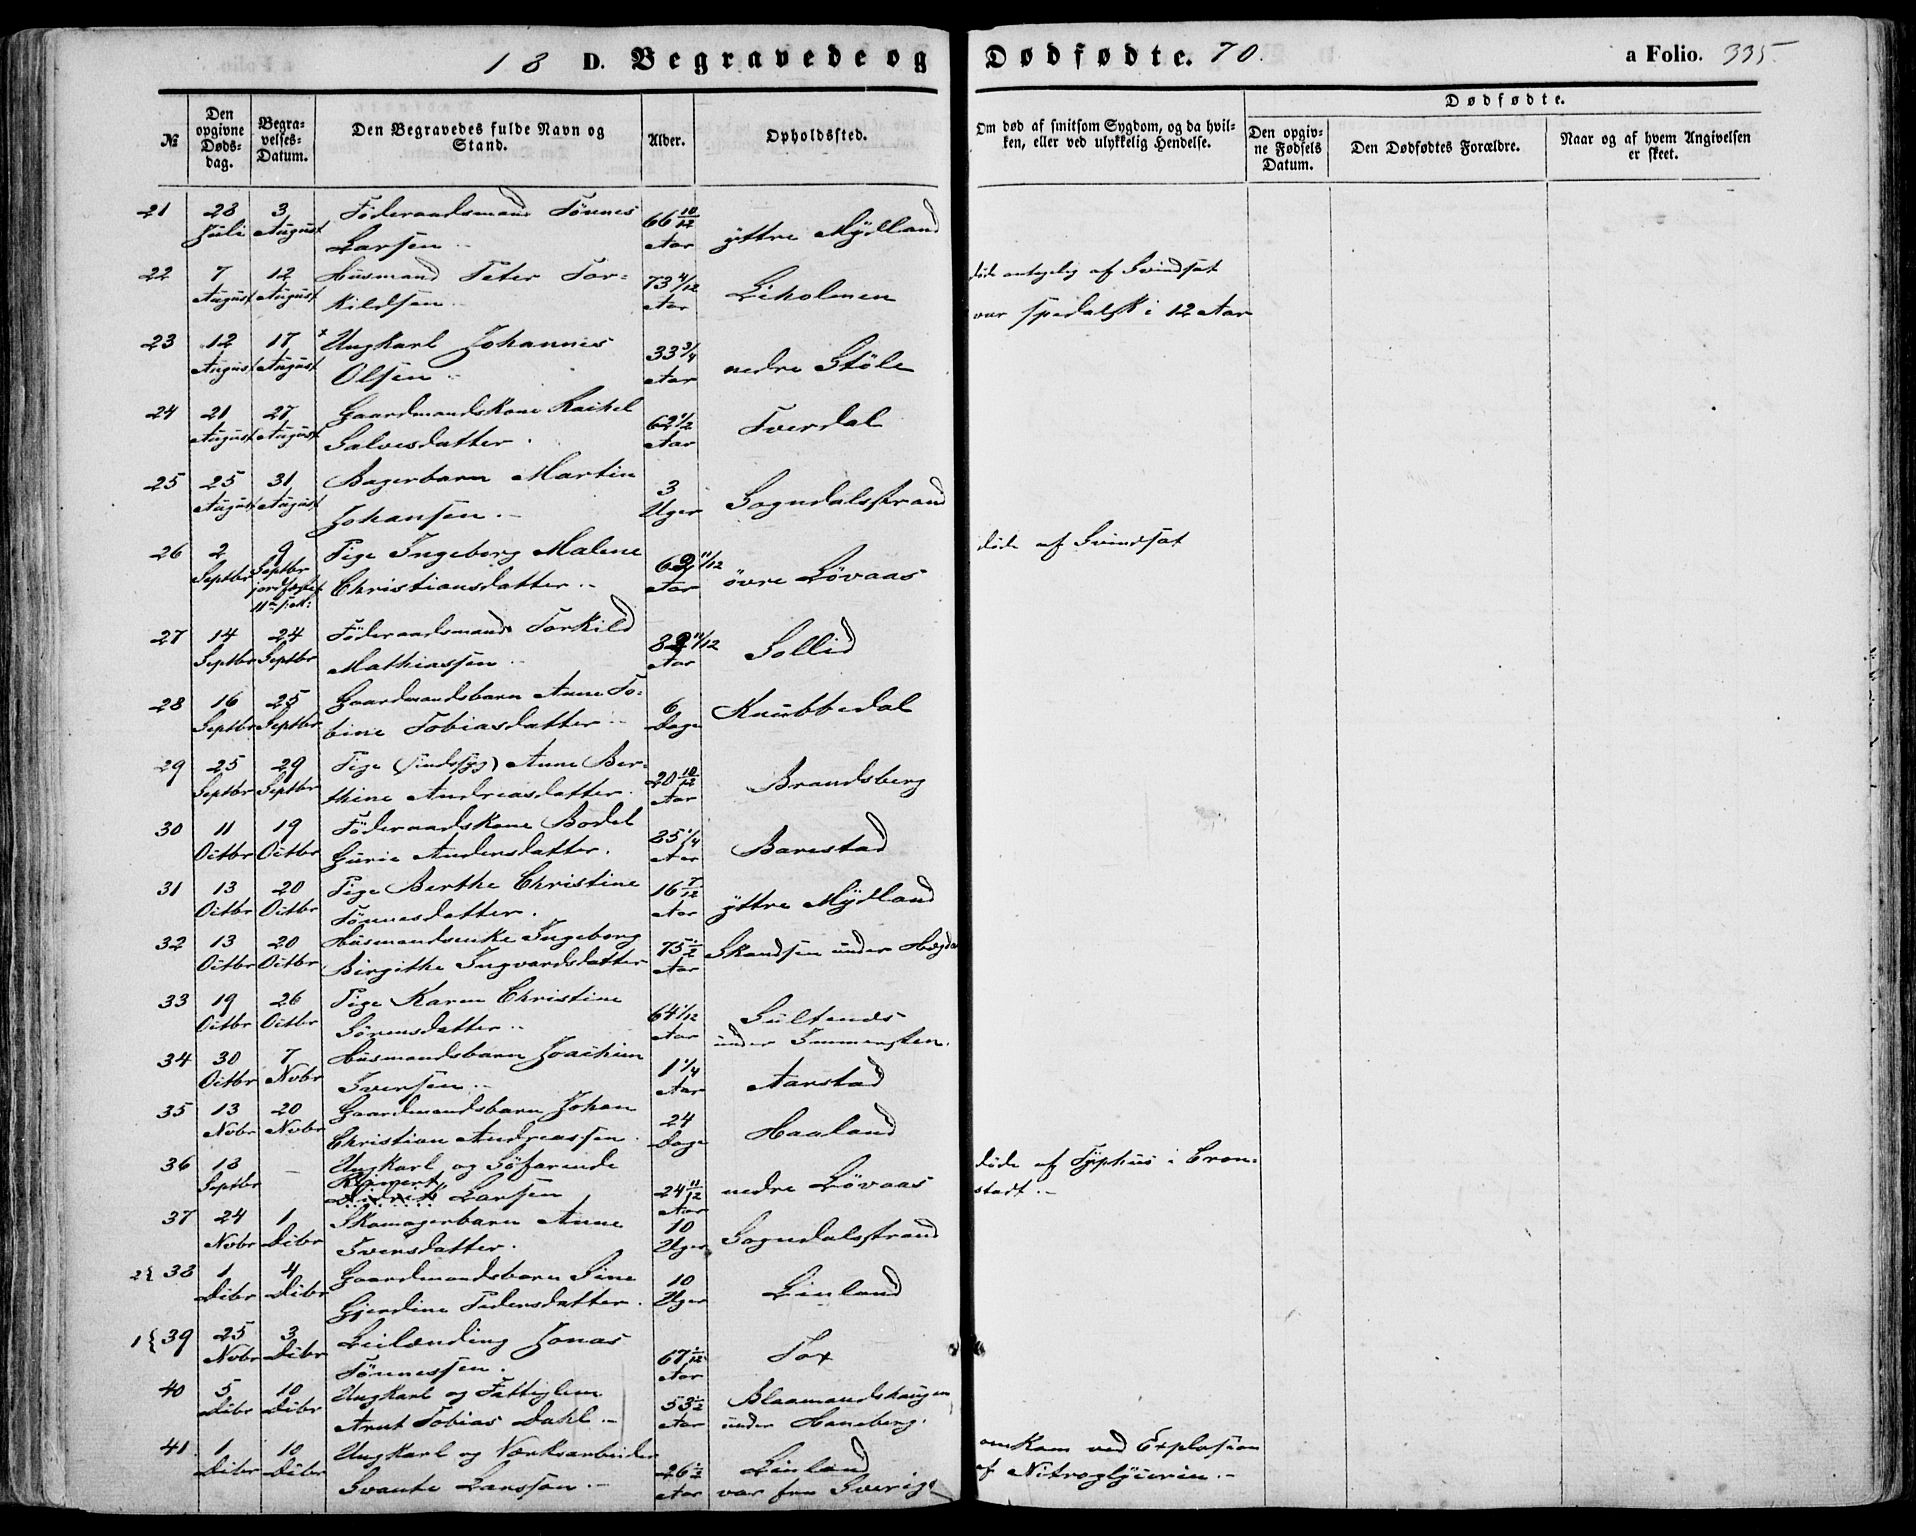 18 D. Begravede og Dødfødte. 70. a Folio. 335.
№ Den opgivne Døds-dag. Begra-velses-Datum. Den Begravedes fulde Navn og Stand. Alder. Opholdssted. Om død af smitsom Sygdom, og da hvil-ken, eller ved ulykkelig Hendelse. Dødfødte. Den opgiv-ne Fødsels Datum. Den Dødfødtes Forældre. Naar og af hvem Angivelsen er skeet.
21 28 3 Föderaadsmand Tönnes 66 10/12
Juli August Larsen Aar yttre Mydland
22 7 12 Husmand Peter Tor= 73 4/12 døde antagelig af Svindsot
August August kildsen Aar Liholmen var spedalsk i 12 Aar
23 12 17 Ungkarl Johannes 33 3/4
August August Olsen Aar nedre Stöle
24 21 27 Gaardmandskone Rachel 62 1/2 Tverdal
August August Salvesdatter. Aar
25 25 31 Bagerbarn Martin 3 Sogndalsstrand
August August Johansen. Uger
26 2 9 Pige Ingeborg Malene 62 11/12 døde af Svindsot
Septbr Septbr Christiansdatter Aar övre Lövaas
jordfæstet
27 14 24 Föderaadsmand Torkild 82 11/12 Sollid
Septbr Septbr Mathiassen Aar
28 16 25 Gaardmandsbarn Anne To= 6 Knubbedal
Septbr Septbr bine Tobiasdatter Dage
29 25 29 Pige (sindssyg) Anne Ber= 20 10/12 Brandsberg
Septbr Septbr thine Andreasdatter. Aar
30 11 19 Föderaadskone Bodel 85 1/4 Barestad
Octbr Octbr Gurie Andersdatter. Aar
31 13 20 Pige Berthe Christine 16 7/12 yttre Mydland
Octbr Octbr Tönnesdatter. Aar
32 13 20 Husmandsenke Ingeborg 75 1/2 Skandsen under
Octbr Octbr Birgithe Ingvardsdatter Aar
33 19 26 Pige Karen Christine 64 1/12 Sultends
Octbr Octbr Sörensdatter Aar under Immersten.
34 30 7 Husmandsbarn Joachim 1 1/4 Aarstad
Octbr Novbr Iversen Aar
35 13 20 Gaardmandsbarn Johan 24 Haaland
Novbr Novbr Christian Andreassen. Dage
36 18 — Ungkarl og Söfarende døde af Typhus i Cron=
Septbr Larsen 24 11/12 Aar nedre Lövaas stadt.
37 24 1 Skomagerbarn Anne 10 Sogndalsstrand
Novbr Decbr Iversdatter. Uger
2{ 38 1 4 Gaardmandsbarn Sine 10 Linland
Decbr Decbr Gjerdine Pedersdatter. Uger
1{ 39 25 3 Leilænding Jonas 67 1/12 Fox
Novbr Decbr Tönnessen. Aar
40 5 10 Ungkarl og Fattiglem 53 1/2 Blaamandshaugen
Decbr Decbr Arnt Tobias Dahl. Aar under Haneberg.
41. 1 10 Ungkarl og Værksarbeider 26 1/2 Linland omkom ved Explosion
Decbr Decbr Svante Larsson. Aar var fra Sverige af Nitroglycerin.